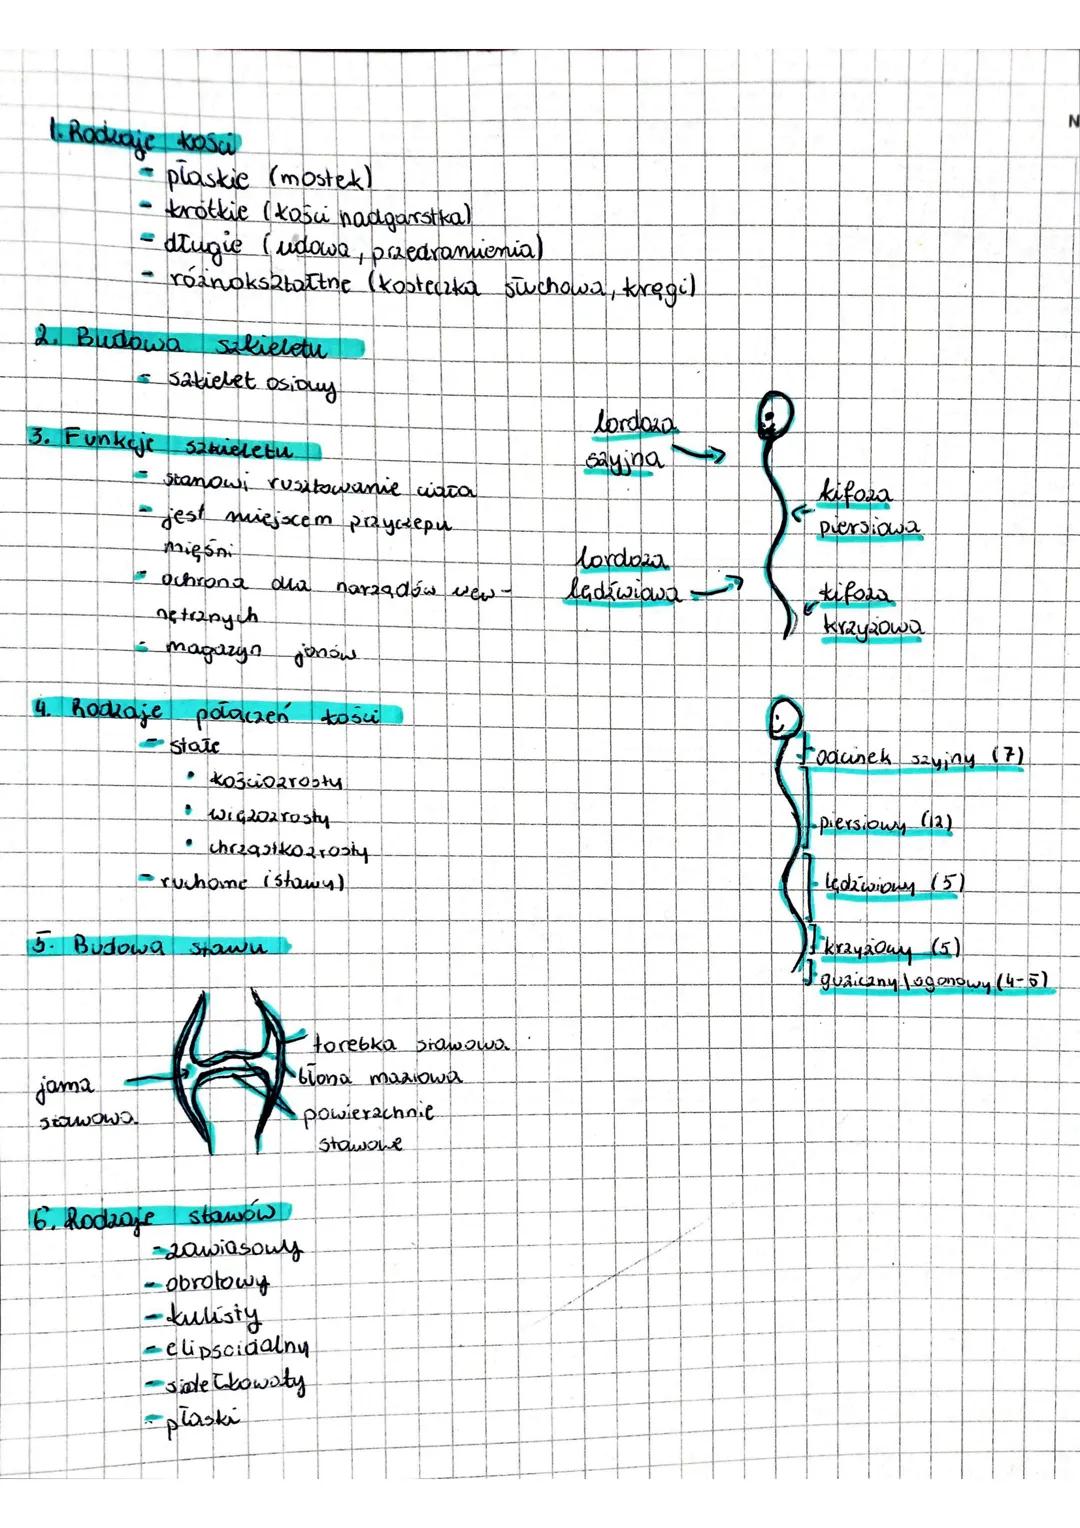 1. Rodzaje kości
- płaskie (mostek)
- krótkie (kości nadgarstka)
- długie (udowa, przedramienia)
- różnokształtne (kosteczka słuchowa, kręgi)
2. Budowa szkieletu
- szkielet osiowy
3. Funkcje szkieletu
- stanowi rusztowanie ciała
- jest miejscem przyczepu
mięśni
- ochrona dla narządów wew-
nętrznych
- magazyn jonów
lordoza
szyjna
kifoza
piersiowa
lordoza
lędźwiowa
kifoza
krzyżowa
4. Rodzaje połączeń kości
- stałe
• kościozrosty
• więzozrosty
• chrząstkozrosty
- ruchome (stawy)
odcinek szyjny (7)
piersiowy (12)
lędźwiowy (5)
krzyżowy (5)
guziczny\ogonowy (4-5)
5. Budowa stawu
torebka stawowa
błona maziowa
powierzchnie
stawowe
jama
stawowa
6. Rodzaje stawów
- zawiasowy
- obrotowy
- kulisty
- elipsoidalny
- siodełkowaty
- płaski
N